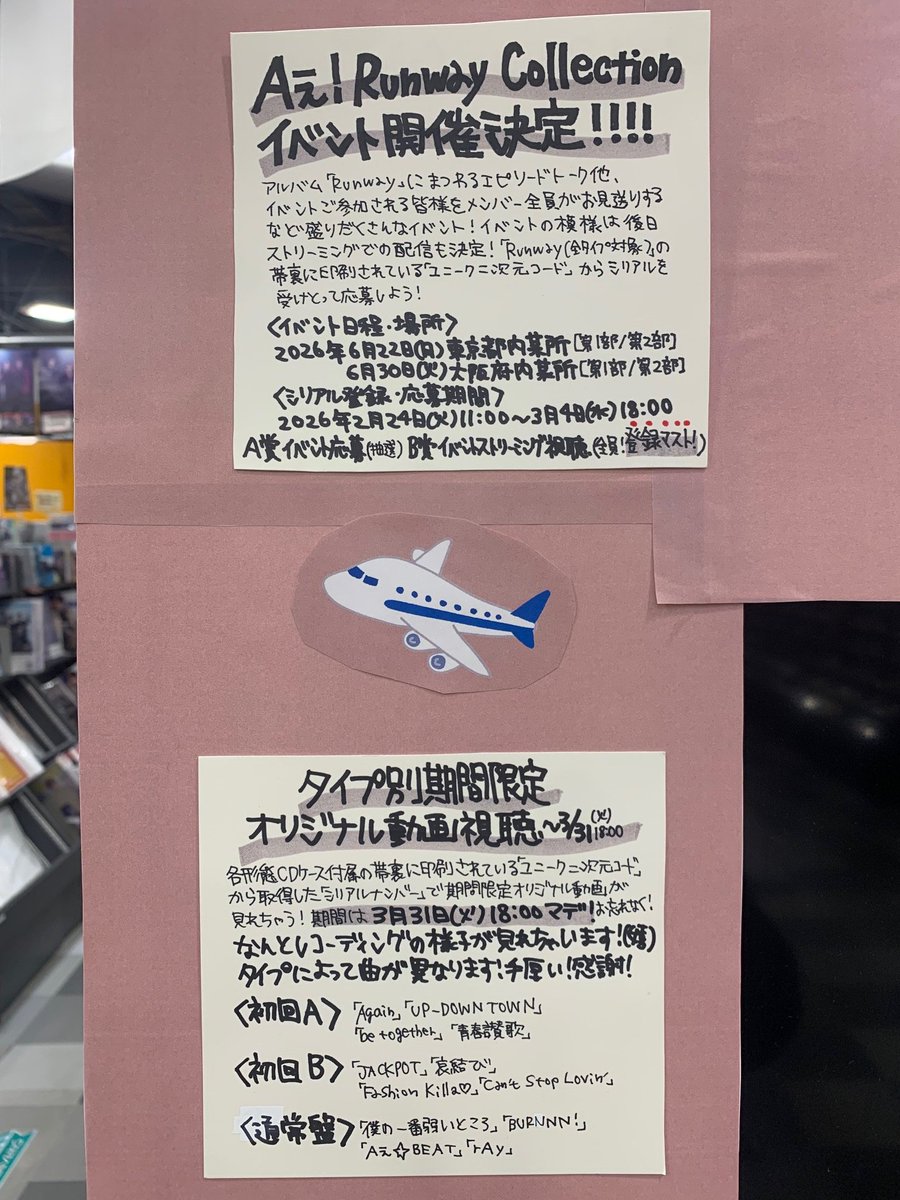 Aぇ! Runway Collection
イベント開催決定!!!!
アルバム「Runway」にまつわるエピソードトーク他、
イベントご参加される皆様をメンバー全員がお見送りする
など盛りだくさんなイベント!イベントの模様は後日
ストリーミングでの配信も決定!「Runway(全タイプ対象)」の
帯裏に印刷されている「ユニーク二次元コード」からシリアルを
受けとって応募しよう!
<イベント日程・場所>
2026年6月22日(月)東京都内某所[第1部/第2部]
6月30日(火)大阪府内某所[第1部/第2部]
<シリアル登録・応募期間>
2026年2月24日(火)11:00〜3月4日(水)18:00
A賞イベント応募(抽選) B賞イベントストリーミング視聴(全員!登録マスト!)
タイプ別期間限定
オリジナル動画視聴〜3/31(火)18:00
各形態CDケース付属の帯裏に印刷されている「ユニーク二次元コード」
から取得した「シリアルナンバー」で期間限定オリジナル動画が
見れちゃう!期間は3月31日(火)18:00マデ!お忘れなく!
なんとレコーディングの様子が見れちゃいます!
タイプによって曲が異なります!手厚い!感謝!
<初回A> 「Again」「UP-DOWN TOWN」
「be together」「青春讃歌」
<初回B> 「JACKPOT」「哀結び」
「Fashion Killa♡」「Can't Stop Lovin'」
<通常盤> 「僕の一番弱いところ」「BURNNN!」
「Aぇ☆BEAT」「rAy」